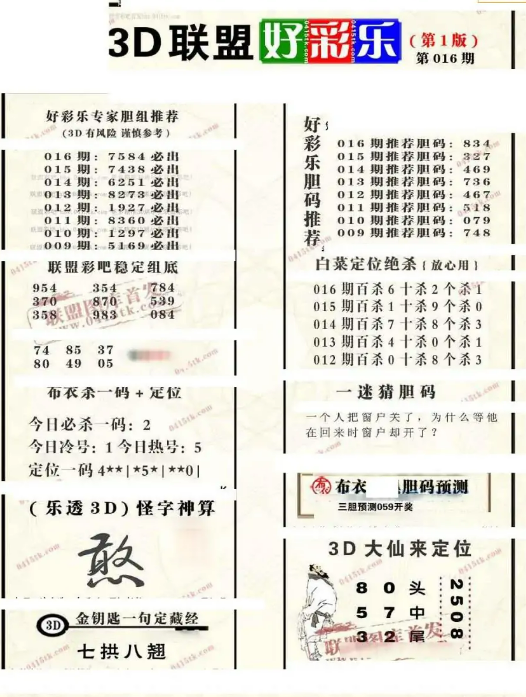 3D联盟好彩乐
(第1版)
第016期
好彩乐专家胆组推荐
(3D有风险 谨慎参考)
016期: 7584必出
015期: 7438必出
014期: 6251必出
013期: 8273必出
012期: 1927必出
011期: 8360必出
010期: 1297必出
009期: 5169必出
联盟彩吧稳定组底
954 354 784
370 870 539
358 983 084
74 85 37
80 49 05
布衣杀一码+定位
今日必杀一码: 2
今日冷号: 1 今日热号: 5
定位一码 4**|*5*|**0|
(乐透3D)怪字神算
憨
3D 金钥匙一句定藏经
七拱八翘
好彩乐胆码推荐
016期推荐胆码: 834
015期推荐胆码: 327
014期推荐胆码: 469
013期推荐胆码: 736
012期推荐胆码: 467
011期推荐胆码: 518
010期推荐胆码: 079
009期推荐胆码: 748
白菜定位绝杀{放心用}
016期百杀6十杀2个杀1
015期百杀1十杀9个杀0
014期百杀7十杀8个杀3
013期百杀4十杀0个杀1
012期百杀0十杀8个杀3
一迷猜胆码
一个人把窗户关了, 为什么等他
在回来时窗户却开了?
布衣 胆码预测
三胆预测059开奖
3D大仙来定位
8 0 头
5 7 中
3 2 尾
2508